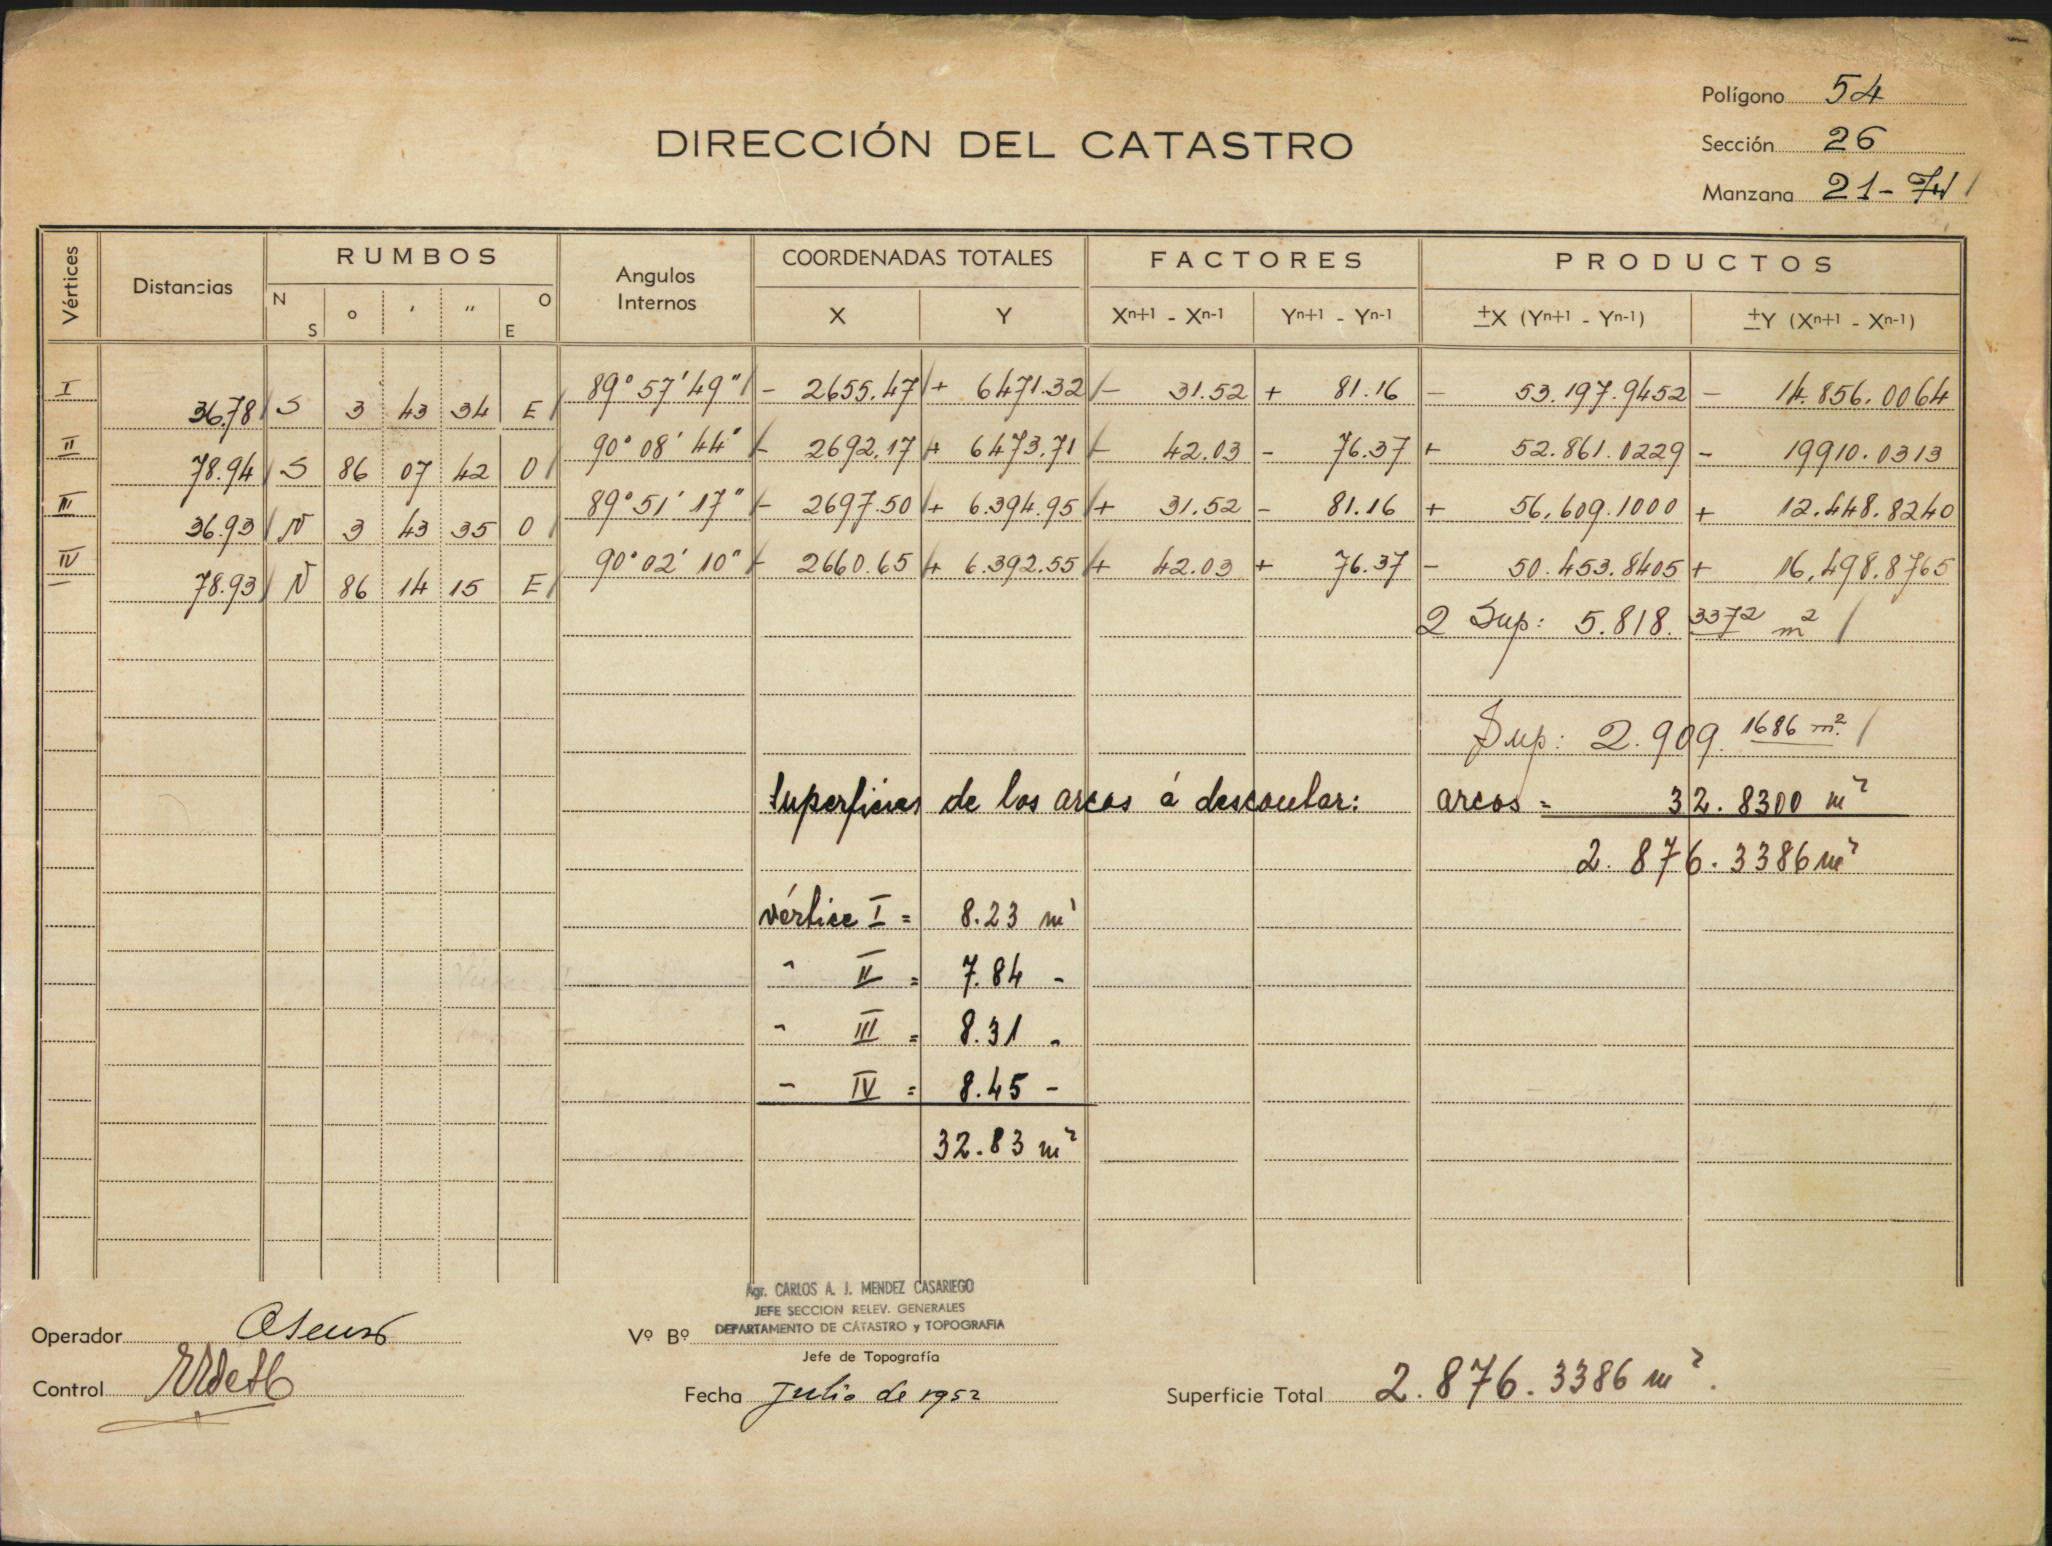 Polígono 54
DIRECCIÓN DEL CATASTRO
Sección 26
Manzana 21-
Vértices Distancias RUMBOS Angulos Internos COORDENADAS TOTALES FACTORES PRODUCTOS
N S o ' " O E X Y Xn+1 - Xn-1 Yn+1 - Yn-1 ±X (Yn+1 - Yn-1) ±Y (Xn+1 - Xn-1)
I 89° 57' 49" - 2655.47 + 6471.32 - 31.52 + 81.16 - 53.197.9452 - 14.856.0064
36.78 S 3 43 34 E
II 90° 08' 44" - 2692.17 + 6473.71 - 42.03 - 76.37 + 52.861.0229 - 19910.0313
78.94 S 86 07 42 O
III 89° 51' 17" - 2697.50 + 6.394.95 + 31.52 - 81.16 + 56.609.1000 + 12.448.8240
36.93 N 3 43 35 O
IV 90° 02' 10" - 2660.65 + 6.392.55 + 42.03 + 76.37 - 50.453.8405 + 16,498.8765
78.93 N 86 14 15 E
2 Sup: 5.818.3372 m²
Sup: 2.909.1686 m²
Superficies de los arcos á descontar: arcos = 32.8300 m²
2.876.3386 m²
vértice I = 8.23 m²
" II = 7.84 -
" III = 8.31 -
" IV = 8.45 -
32.83 m²
Agr. CARLOS A. J. MENDEZ CASARIEGO
JEFE SECCION RELEV. GENERALES
DEPARTAMENTO DE CATASTRO y TOPOGRAFIA
Operador
Vº Bº
Jefe de Topografía
Control
Fecha Julio de 1952
Superficie Total 2.876.3386 m².